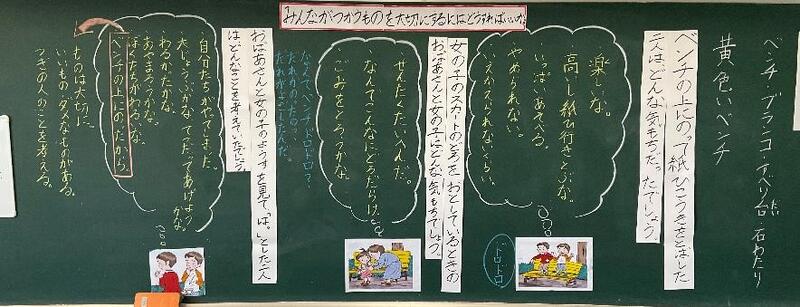 みんながつかうものを大切にするにはどうすればいいか。
ベンチ・ブランコ・すべり台・石わたり
黄色いベンチ
ベンチの上にのって紙ひこうきをとばした
二人は、どんな気もちだったでしょう。
楽しいな。
高いし紙ひ行きとぶな。
いっぱいあそべる。
やめられない。
ドロドロ
女の子のスカートのどろをおとしているときの
おばあさんと女の子は、どんな気もちでしょう。
せんたくたいへんだ。
なんてこんなにどろだらけ。
ごみをとろうかな。
なんで、ベンチドロドロ?
おばあさんと女の子のようすを見て「は。」とした二人
はどんなことを考えていたでしょう。
自分たちがやってきまった。
大じょうぶかな てつだってあげようかな。
わるかったかな。
あやまろうかな。
ぼくたちがわるいな。
ベンチの上にのったから
ものは大切に。
いいもの ダメなものがある。
つぎの人のことを考える。